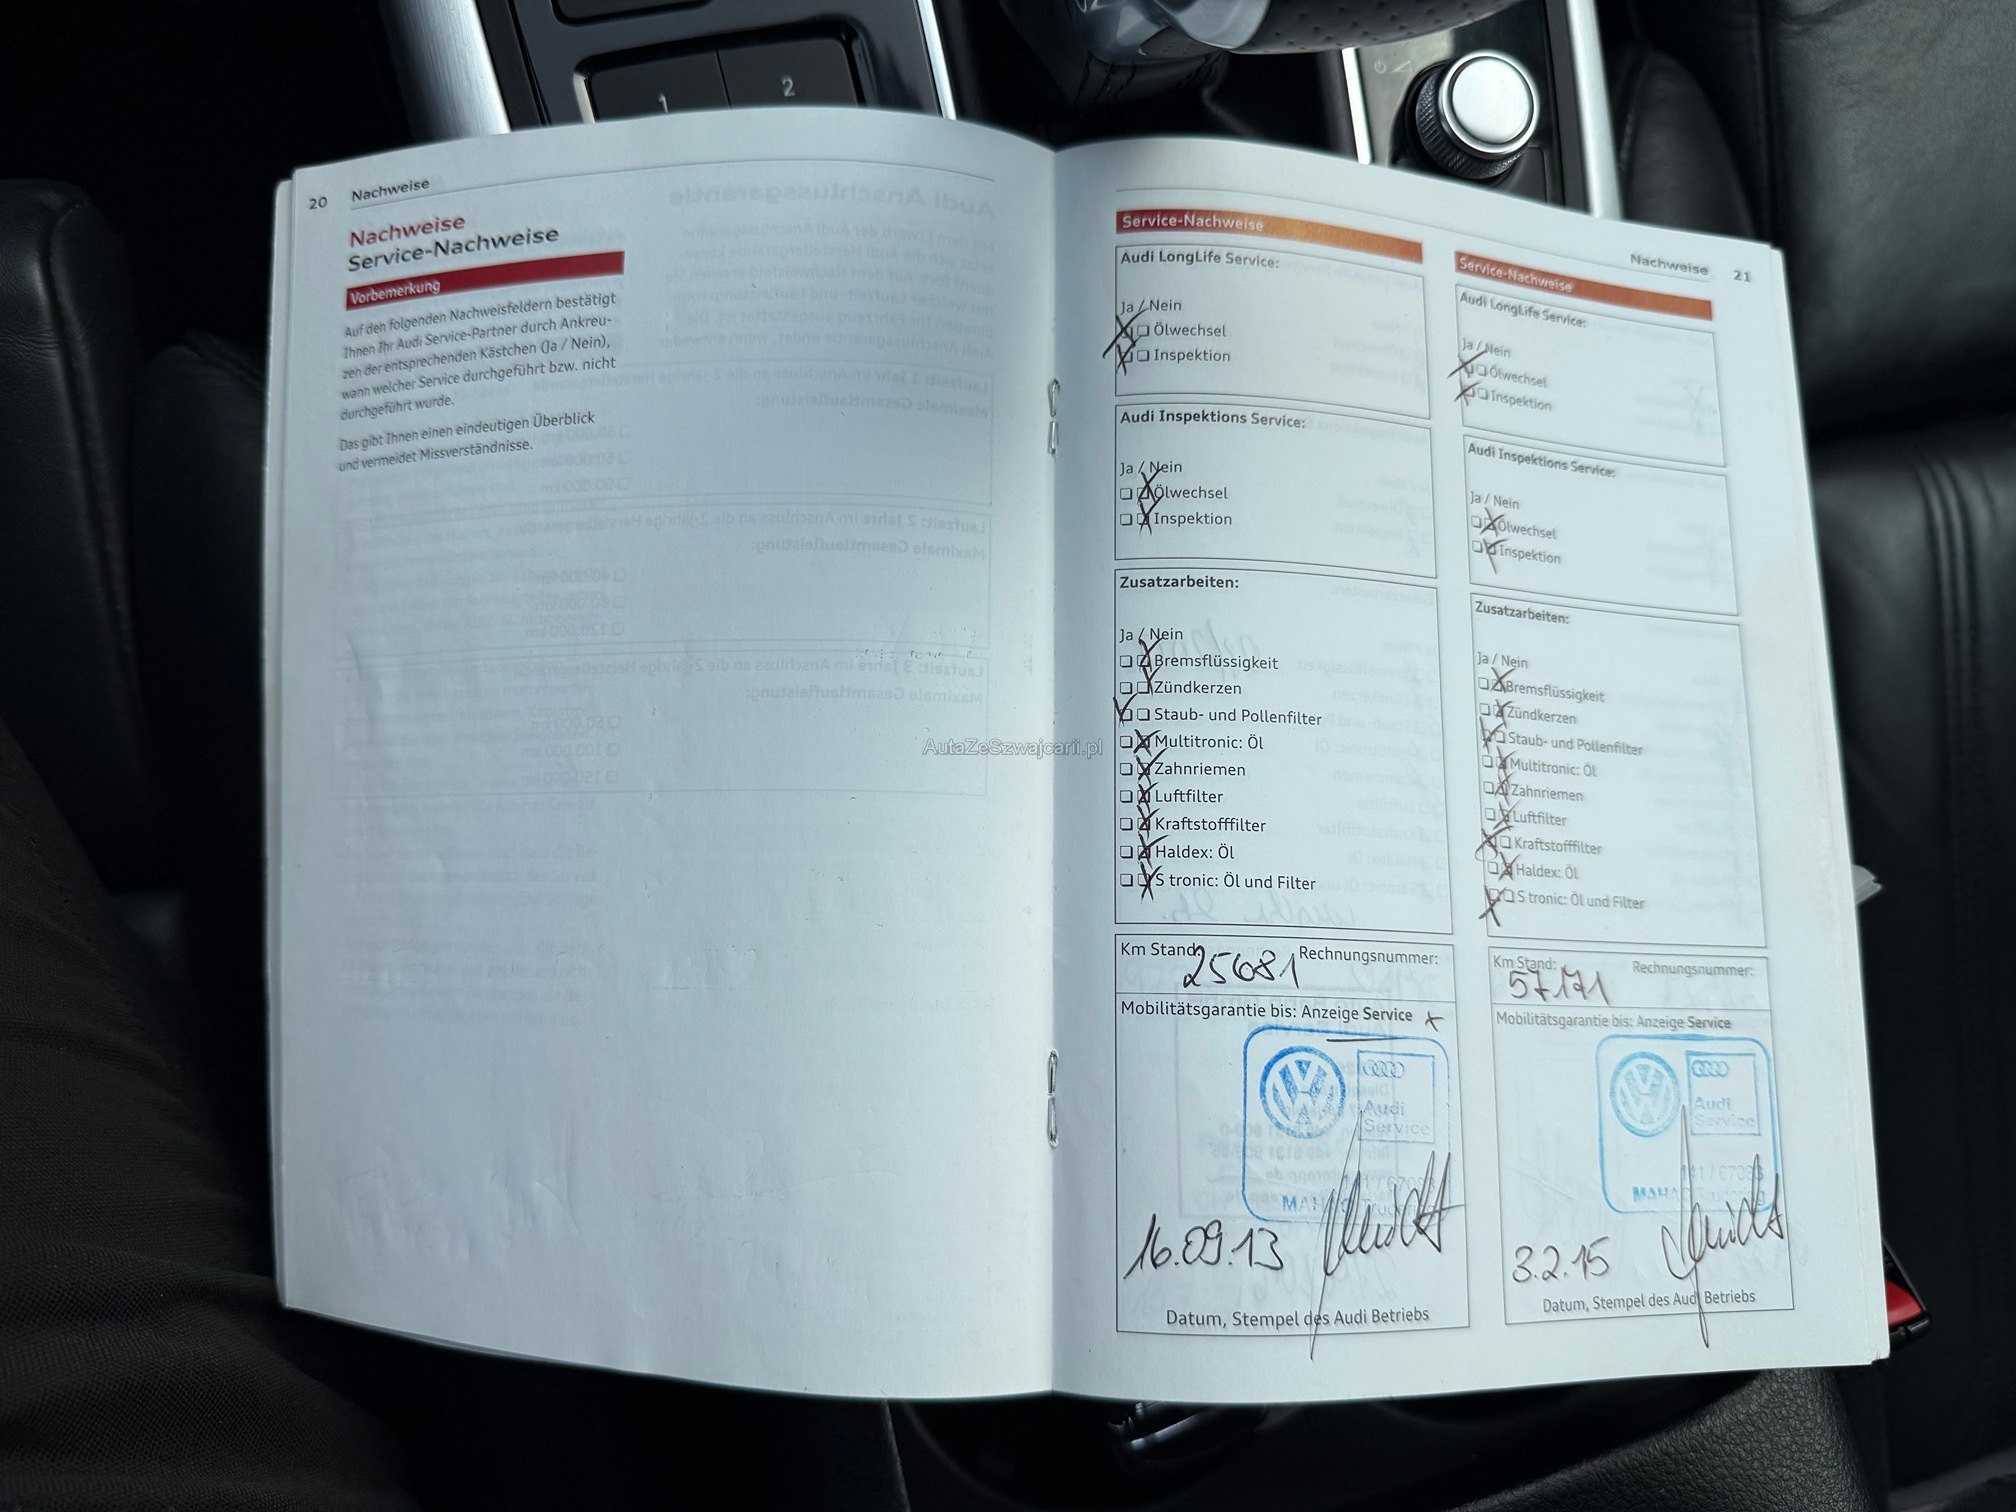 1
2
20 Nachweise
Nachweise
Service-Nachweise
Vorbemerkung
Auf den folgenden Nachweisfeldern bestätigt
Ihnen Ihr Audi Service-Partner durch Ankreu-
zen der entsprechenden Kästchen (Ja / Nein),
wann welcher Service durchgeführt bzw. nicht
durchgeführt wurde.
Das gibt Ihnen einen eindeutigen Überblick
und vermeidet Missverständnisse.
AutaZeSzwajcarii.pl
Service-Nachweise
Audi LongLife Service:
Ja / Nein
Ölwechsel
Inspektion
Audi Inspektions Service:
Ja / Nein
Ölwechsel
Inspektion
Zusatzarbeiten:
Ja / Nein
Bremsflüssigkeit
Zündkerzen
Staub- und Pollenfilter
Multitronic: Öl
Zahnriemen
Luftfilter
Kraftstofffilter
Haldex: Öl
S tronic: Öl und Filter
Km Stand: 25681 Rechnungsnummer:
Mobilitätsgarantie bis: Anzeige Service
Audi
Service
16.09.13
Datum, Stempel des Audi Betriebs
Nachweise 21
Service-Nachweise
Audi LongLife Service:
Ja / Nein
Ölwechsel
Inspektion
Audi Inspektions Service:
Ja / Nein
Ölwechsel
Inspektion
Zusatzarbeiten:
Ja / Nein
Bremsflüssigkeit
Zündkerzen
Staub- und Pollenfilter
Multitronic: Öl
Zahnriemen
Luftfilter
Kraftstofffilter
Haldex: Öl
S tronic: Öl und Filter
Km Stand: 57171 Rechnungsnummer:
Mobilitätsgarantie bis: Anzeige Service
Audi
Service
3.2.15
Datum, Stempel des Audi Betriebs